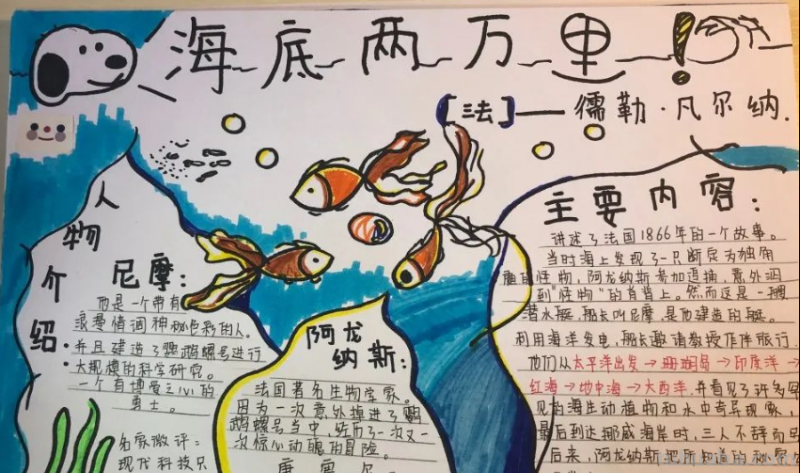 海底两万里!
[法]——儒勒·凡尔纳.
人物介绍:
尼摩:
他是一个带有
浪漫情调神秘色彩的人.
并且建造了鹦鹉螺号进行
大规模的科学研究。
一个有博爱之心的
勇士。
名家微评:
现代科技只
阿龙纳斯:
法国著名生物学家。
因为一次意外掉进了鹦
鹉螺号当中,
惊心动魄的冒险。
主要内容:
讲述了法国1866年的一个故事。
当时海上发现了一只断层为独角
的怪物,阿龙纳斯参加追捕,意外泅
到"怪物"的脊背上。然而这是一艘
潜水艇,船长叫尼摩,是他建造的艇。
利用海洋发电,船长邀请教授作伴旅行.
他们从太平洋出发→珊瑚岛→印度洋→
红海→地中海→大西洋.并看见了许多罕
见的海生动植物和水中奇异现象,
最后到达挪威海岸时,三人不辞而
后来,阿龙纳斯把所知道的秘密